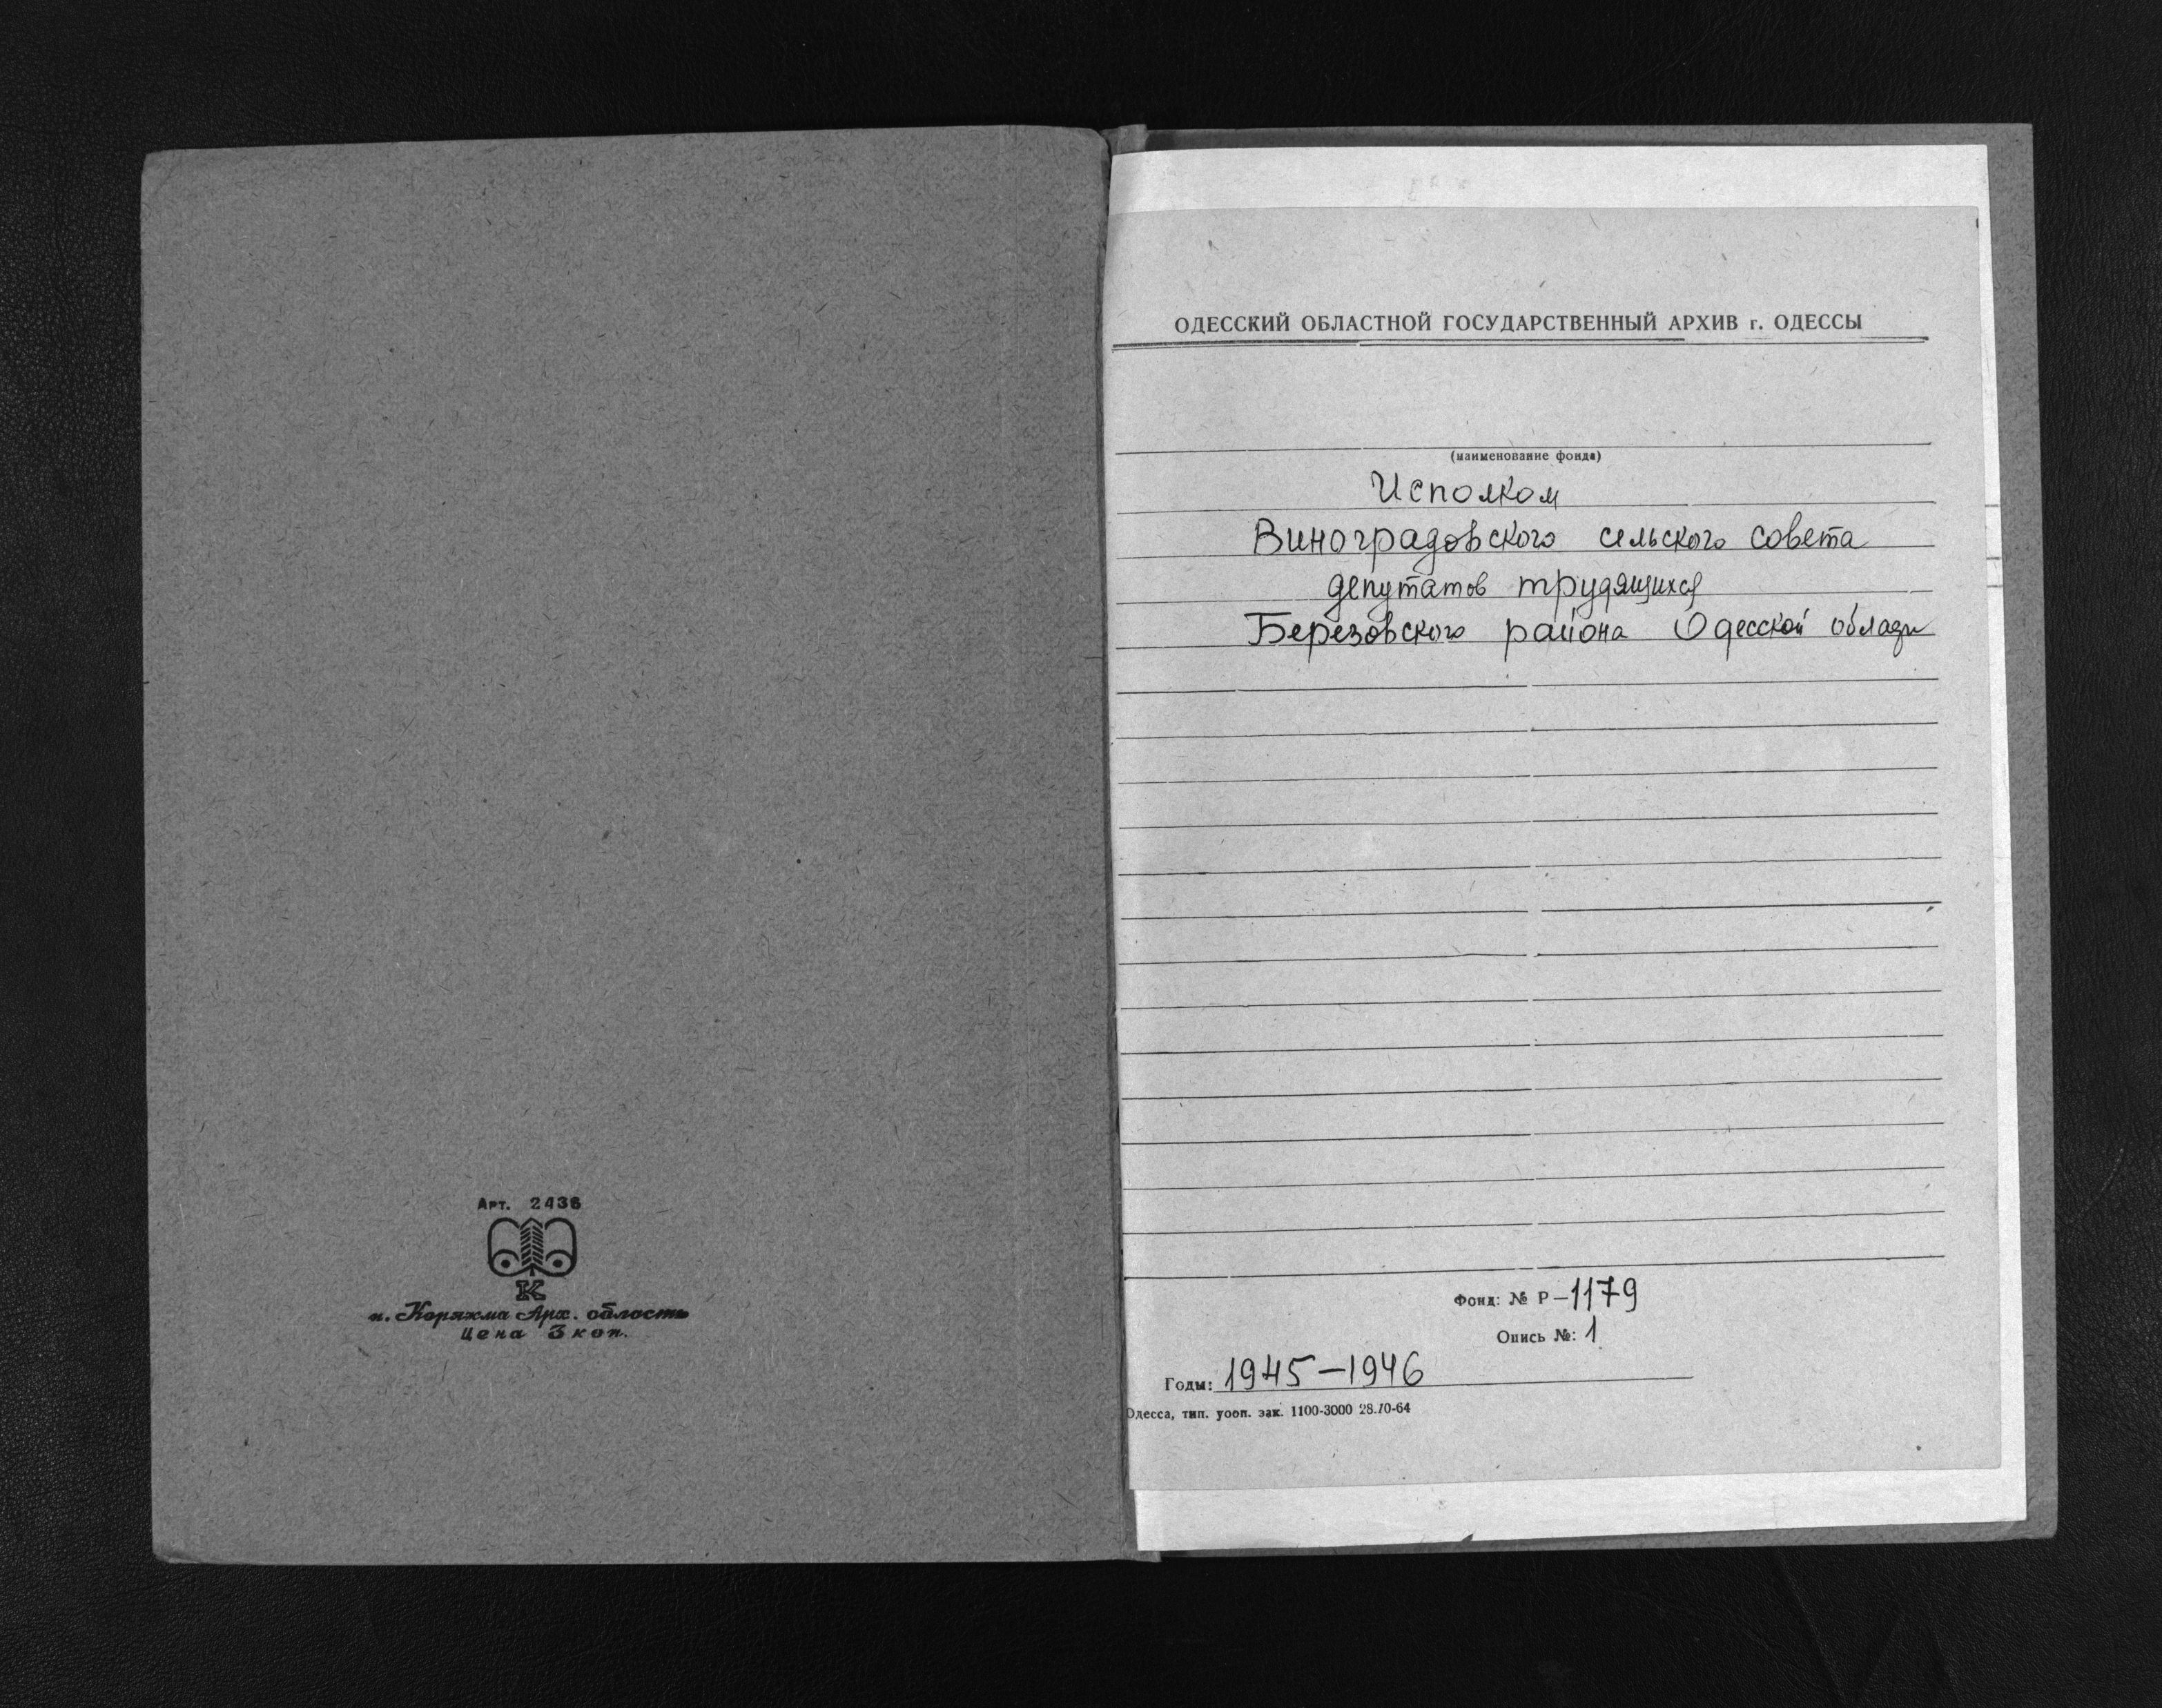 Арт. 2436
К
п. Коряжма Арх. область
Цена 3 коп.
ОДЕССКИЙ ОБЛАСТНОЙ ГОСУДАРСТВЕННЫЙ АРХИВ г. ОДЕССЫ
(наименование фонда)
Исполком
Виноградовского сельского совета
депутатов трудящихся
Березовского района Одесской
Фонд: № Р-1179
Опись №: 1
Годы: 1945-1946
Одесса, тип. уооп. зак. 1100-3000 28.10-64